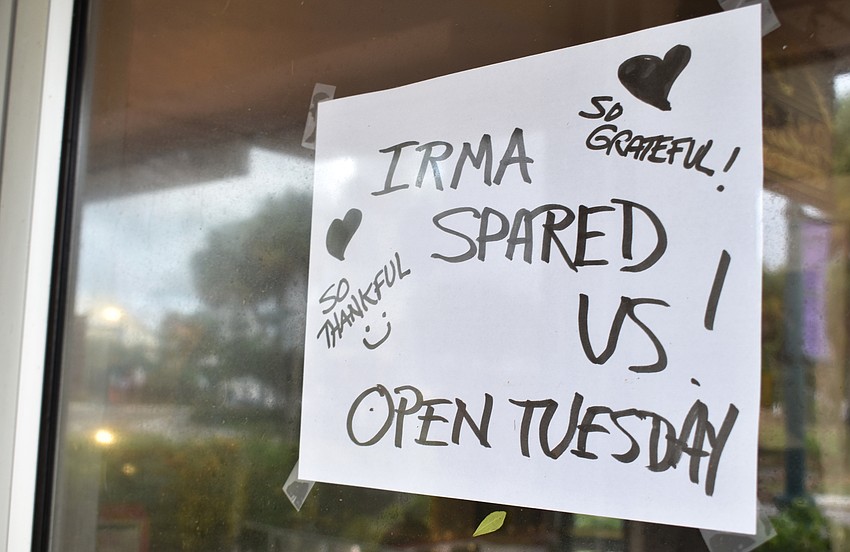 SO
GRATEFUL!
IRMA
SPARED
US!
SO
THANKFUL
OPEN TUESDAY